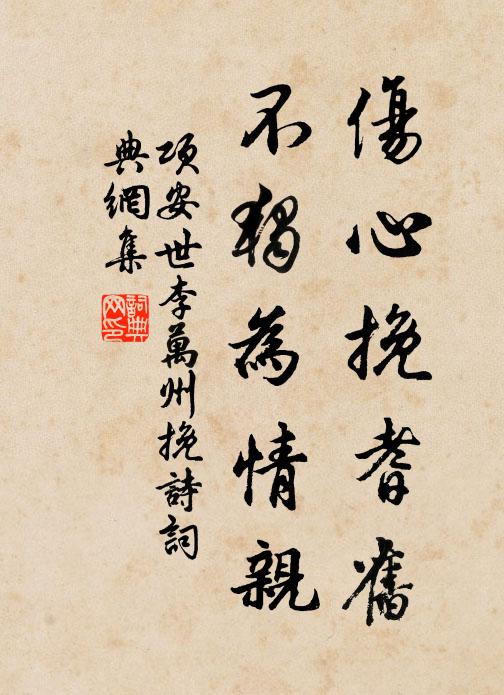 傷心挽耆舊
不獨為情親
項安世李萬州挽詩詞
典網集
詞典網印